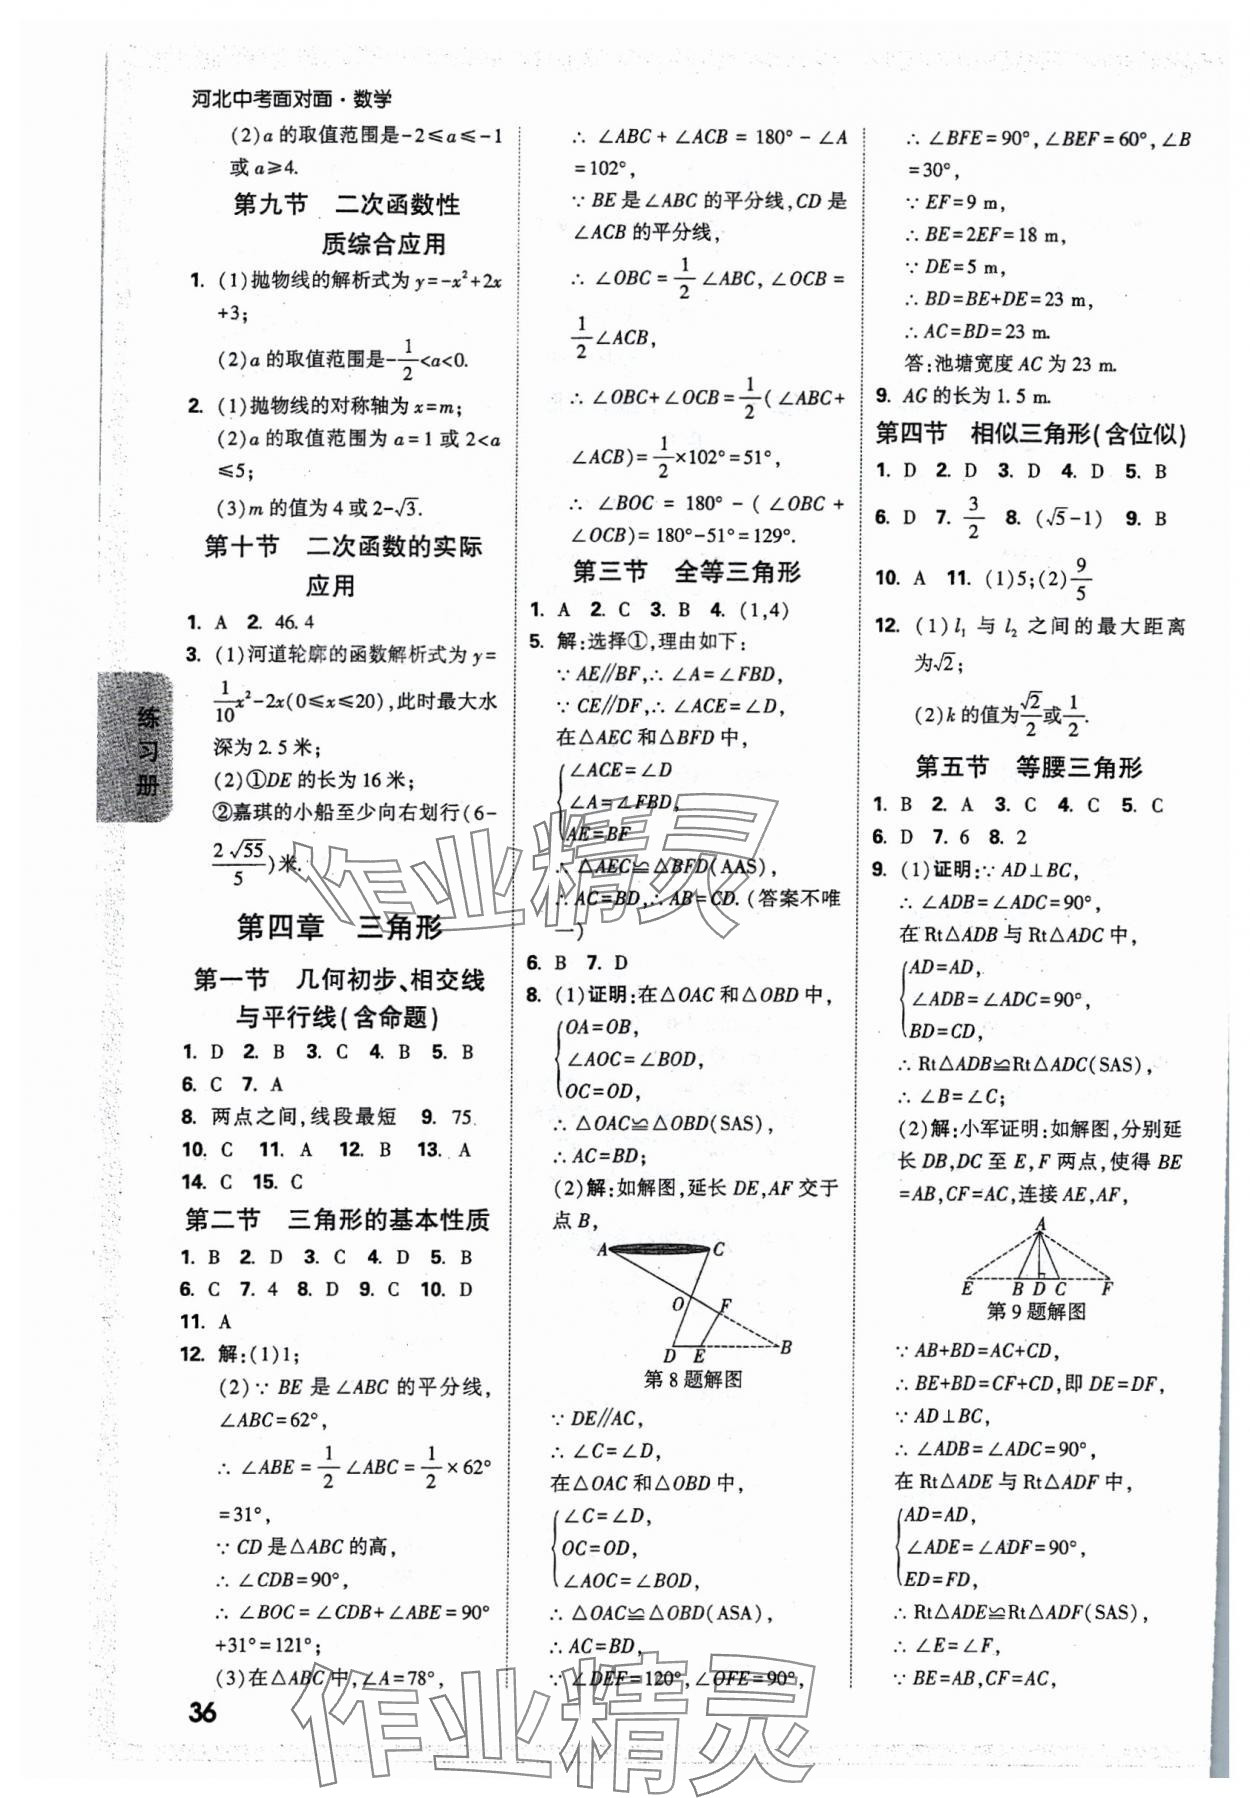 河北中考面对面·数学
(2)a 的取值范围是-2≤a≤-1
或 a≥4.
第九节 二次函数性
质综合应用
1. (1)抛物线的解析式为 y=-x²+2x
+3;
(2)a 的取值范围是-1/2<a<0.
2. (1)抛物线的对称轴为 x=m;
(2)a 的取值范围为 a=1 或 2<a
≤5;
(3)m 的值为 4 或 2-√3.
第十节 二次函数的实际
应用
1. A 2. 46.4
3. (1)河道轮廓的函数解析式为 y=
1/10x²-2x(0≤x≤20),此时最大水
深为 2.5 米;
(2)①DE 的长为 16 米;
②嘉琪的小船至少向右划行(6-
2√55/5)米.
第四章 三角形
第一节 几何初步、相交线
与平行线(含命题)
1. D 2. B 3. C 4. B 5. B
6. C 7. A
8. 两点之间,线段最短 9. 75
10. C 11. A 12. B 13. A
14. C 15. C
第二节 三角形的基本性质
1. B 2. D 3. C 4. D 5. B
6. C 7. 4 8. D 9. C 10. D
11. A
12. 解:(1)1;
(2)∵ BE 是∠ABC 的平分线,
∠ABC=62°,
∴ ∠ABE=1/2∠ABC=1/2×62°
=31°,
∵ CD 是△ABC 的高,
∴ ∠CDB=90°,
∴ ∠BOC=∠CDB+∠ABE=90°
+31°=121°;
(3)在△ABC 中,∠A=78°,
36
练习册
∴ ∠ABC+∠ACB=180°-∠A
=102°,
∵ BE 是∠ABC 的平分线,CD 是
∠ACB 的平分线,
∴ ∠OBC=1/2∠ABC,∠OCB=
1/2∠ACB,
∴ ∠OBC+∠OCB=1/2(∠ABC+
∠ACB)=1/2×102°=51°,
∴ ∠BOC=180°-(∠OBC+
∠OCB)=180°-51°=129°.
第三节 全等三角形
1. A 2. C 3. B 4. (1,4)
5. 解:选择①,理由如下:
∵ AE∥BF,∴ ∠A=∠FBD,
∵ CE∥DF,∴ ∠ACE=∠D,
在△AEC 和△BFD 中,
∠ACE=∠D
∠A=∠FBD,
AE=BF
∴ △AEC≌△BFD(AAS),
∴ AC=BD,∴ AB=CD.(答案不唯
一)
6. B 7. D
8. (1)证明:在△OAC 和△OBD 中,
OA=OB,
∠AOC=∠BOD,
OC=OD,
∴ △OAC≌△OBD(SAS),
∴ AC=BD;
(2)解:如解图,延长 DE,AF 交于
点 B,
A C
O F
D E B
第 8 题解图
∵ DE∥AC,
∴ ∠C=∠D,
在△OAC 和△OBD 中,
∠C=∠D,
OC=OD,
∠AOC=∠BOD,
∴ △OAC≌△OBD(ASA),
∴ AC=BD,
∵ ∠DEF=120°,∠OFE=90°,
∴ ∠BFE=90°,∠BEF=60°,∠B
=30°,
∵ EF=9 m,
∴ BE=2EF=18 m,
∵ DE=5 m,
∴ BD=BE+DE=23 m,
∴ AC=BD=23 m.
答:池塘宽度 AC 为 23 m.
9. AG 的长为 1.5 m.
第四节 相似三角形(含位似)
1. D 2. D 3. D 4. D 5. B
6. D 7. 3/2 8. (√5-1) 9. B
10. A 11. (1)5;(2)9/5
12. (1)l₁ 与 l₂ 之间的最大距离
为√2;
(2)k 的值为√2/2或1/2.
第五节 等腰三角形
1. B 2. A 3. C 4. C 5. C
6. D 7. 6 8. 2
9. (1)证明:∵ AD⊥BC,
∴ ∠ADB=∠ADC=90°,
在 Rt△ADB 与 Rt△ADC 中,
AD=AD,
∠ADB=∠ADC=90°,
BD=CD,
∴ Rt△ADB≌Rt△ADC(SAS),
∴ ∠B=∠C;
(2)解:小军证明:如解图,分别延
长 DB,DC 至 E,F 两点,使得 BE
=AB,CF=AC,连接 AE,AF,
A
E B D C F
第 9 题解图
∵ AB+BD=AC+CD,
∴ BE+BD=CF+CD,即 DE=DF,
∵ AD⊥BC,
∴ ∠ADB=∠ADC=90°,
在 Rt△ADE 与 Rt△ADF 中,
AD=AD,
∠ADE=∠ADF=90°,
ED=FD,
∴ Rt△ADE≌Rt△ADF(SAS),
∴ ∠E=∠F,
∵ BE=AB,CF=AC,
作业精灵
作业精灵